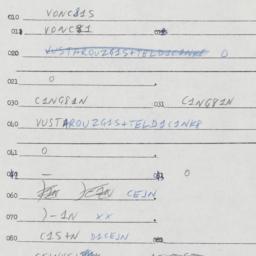 010 VONC81S
011 VONC81
020 VUSTAROUZG1S+TELD1C1NK8 0
021 0
030 C1NG81N 031 C1NG81N
040 VUSTAROUZG1S+TELD1C1NK8
041 0
0
060 CEJN
070 )-1N XX
080 C1S+N D1CEJN